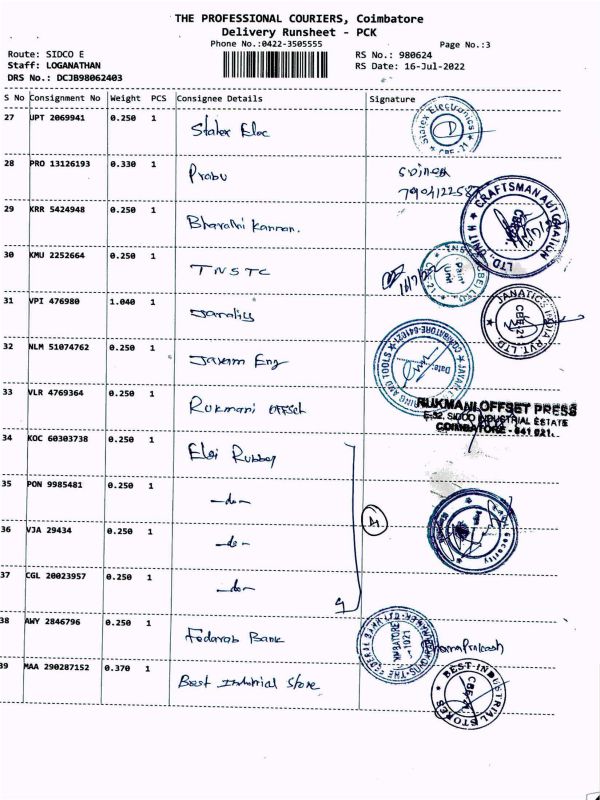 THE PROFESSIONAL COURIERS, Coimbatore
Delivery Runsheet - PCK
Phone No.:0422-3505555
Page No.:3
Route: SIDCO E
RS No.: 980624
Staff: LOGANATHAN
RS Date: 16-Jul-2022
DRS No.: DCJB98062403
S No Consignment No Weight PCS Consignee Details Signature
27 UPT 2069941 0.250 1 Statex Elec Statex Electronics
28 PRO 13126193 0.330 1 Prabu
29 KRR 5424948 0.250 1 Bharathi Kannan. CRAFTSMAN AUTOMATION LTD. UNIT
30 KMU 2252664 0.250 1 TNSTC
31 VPI 476980 1.040 1 JANATICS INDIA PVT. LTD CBE-21
32 NLM 51074762 0.250 1 Jayam Eng COIMBATORE-641021 AND TOOLS Date:
33 VLR 4769364 0.250 1 Rukmani offset
RUKMANI OFFSET PRESS
E-52, SIDCO INDUSTRIAL ESTATE
COIMBATORE - 641 021.
34 KOC 60303738 0.250 1 Elgi Rubber
35 PON 9985481 0.250 1 -do-
36 VJA 29434 0.250 1 -do- Security
37 CGL 20023957 0.250 1 -do-
38 AWY 2846796 0.250 1 Fedaral Bank THE FEDERAL BANK LTD
39 MAA 290287152 0.370 1 Best Industrial Store BEST INDUSTRIAL STORES CBE-21